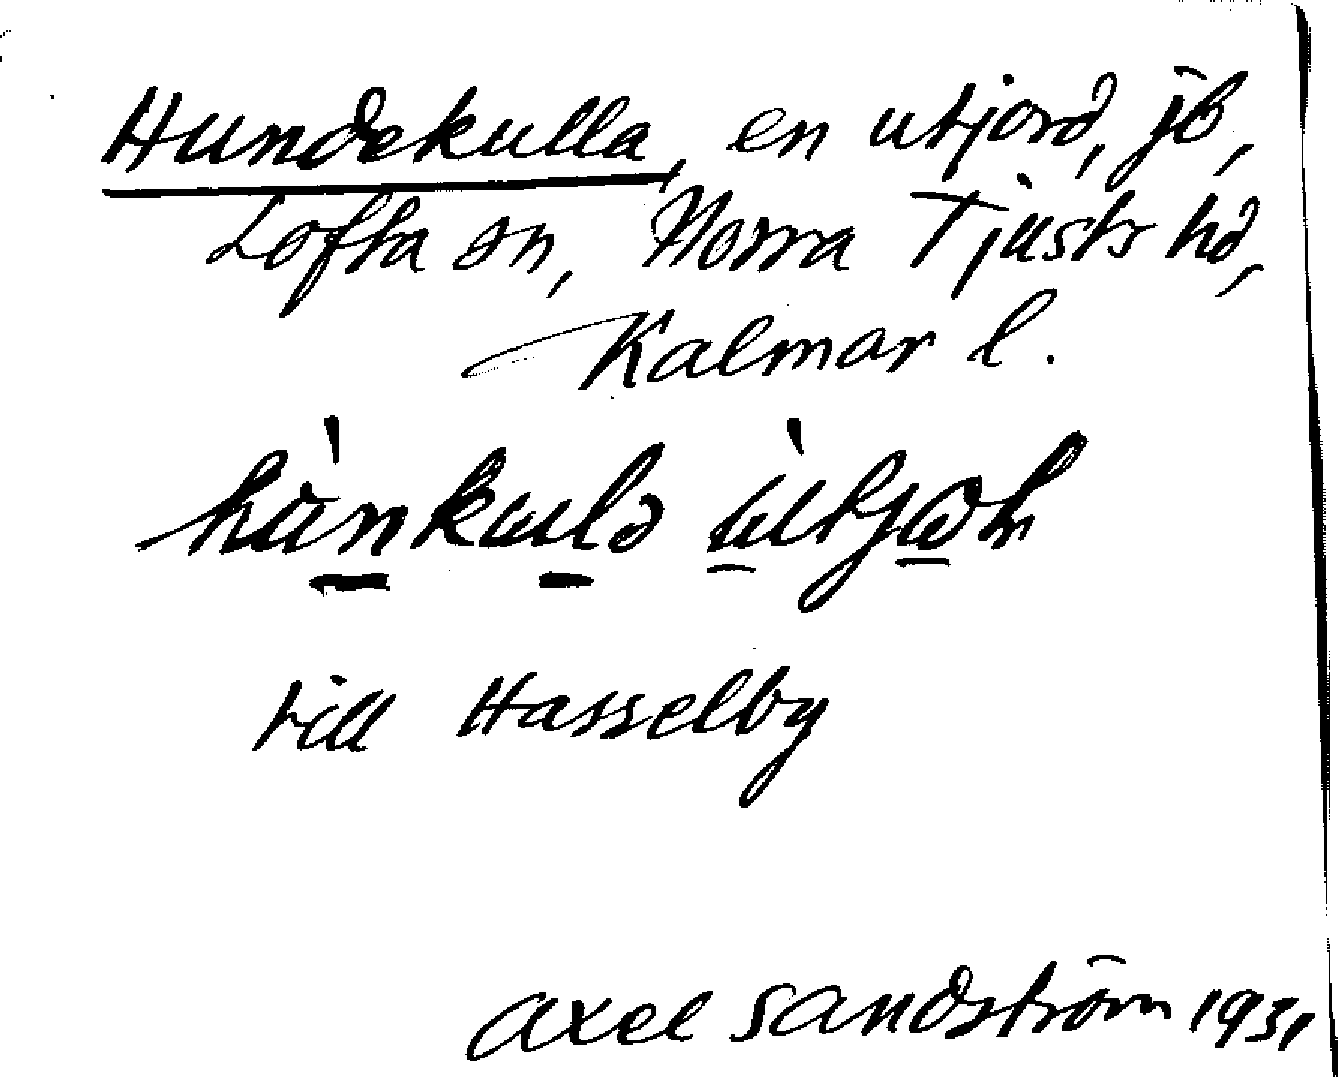 Hundekulla, en utjord, jb,
Lofta sn, Norra Tjusts hd,
Kalmar l.
hùnkulə ùtjoḷ
till Hasselby
Axel Sandström 1931